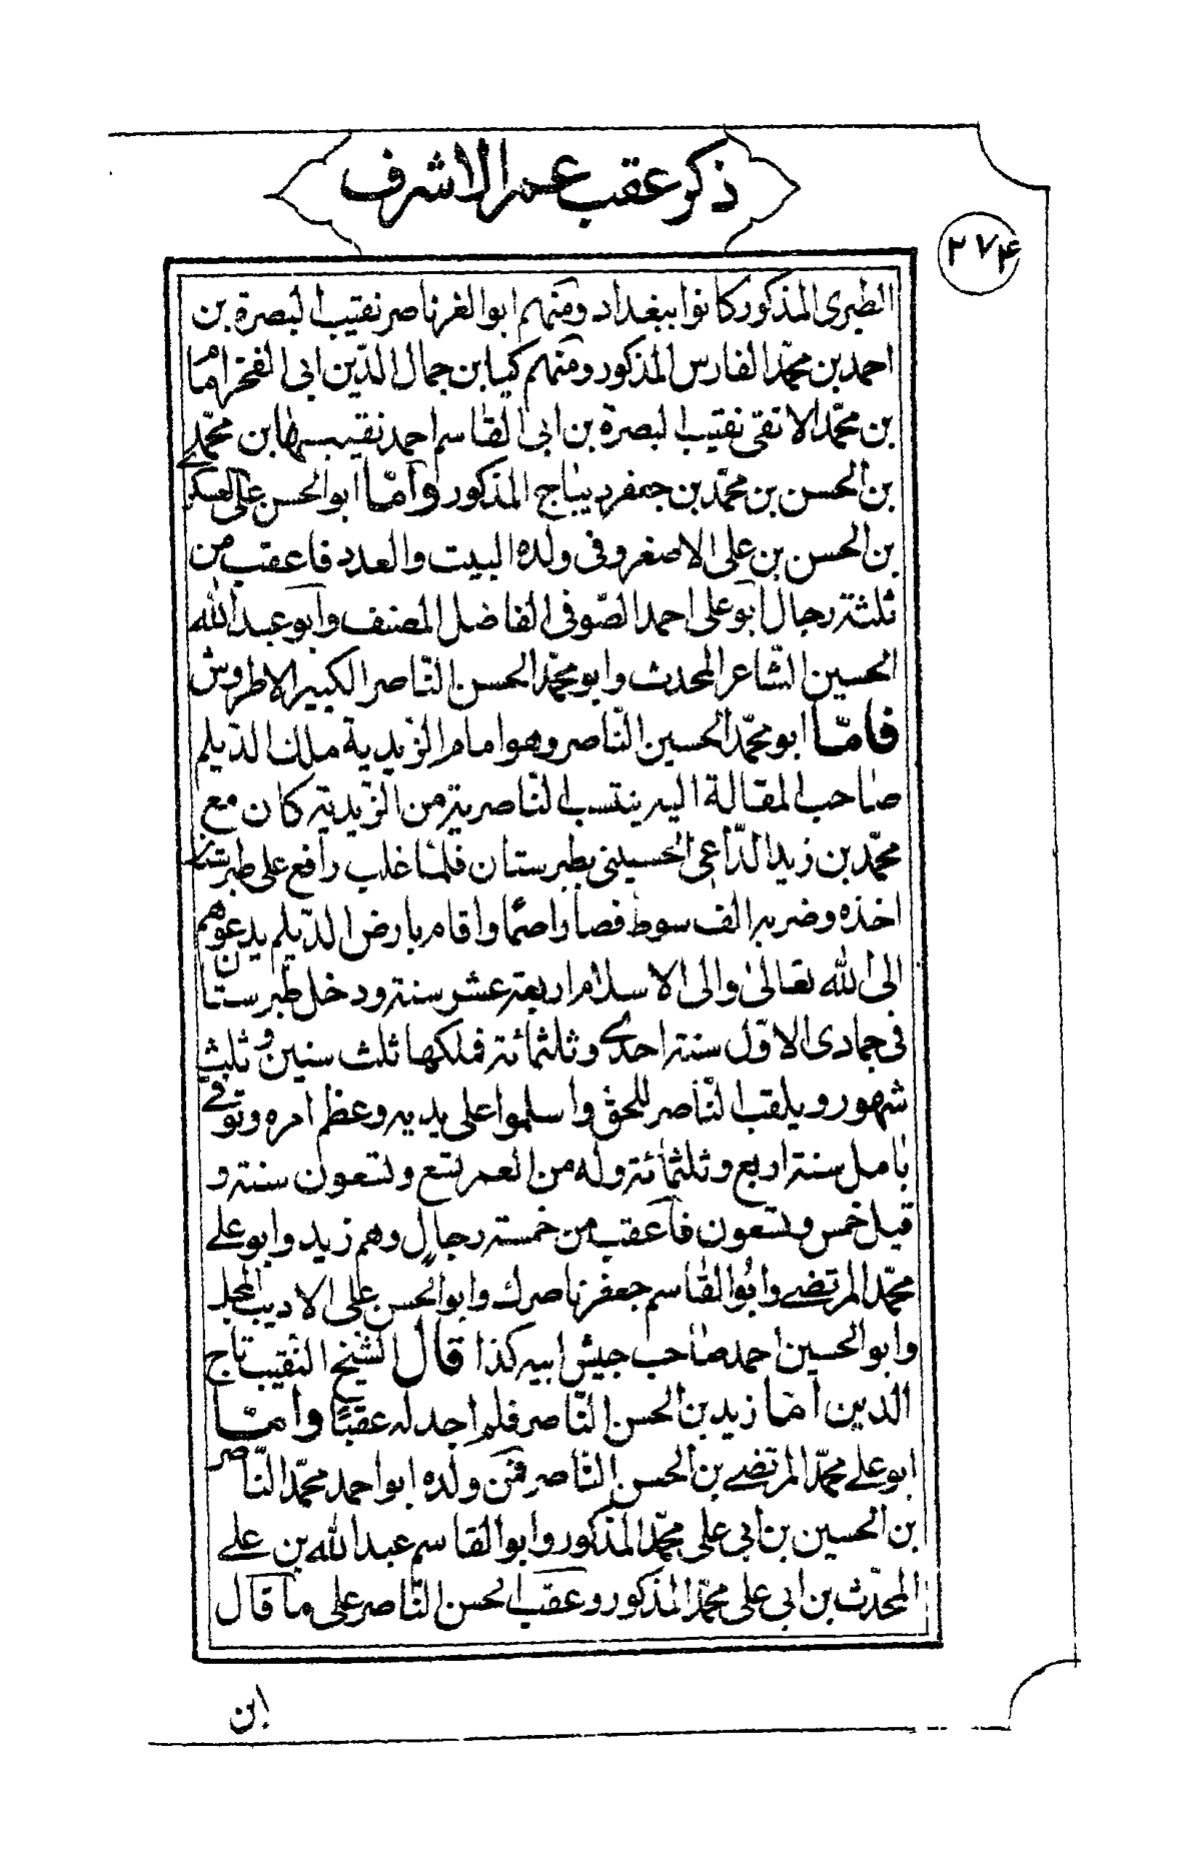 ذكر عقب عمر الاشرف
٢٧۴
الطبرى المذكور كانوا ببغداد ومنهم ابو الغر ناصر نقيب البصرة بن
احمد بن محمّد الفارس المذكور ومنهم كيا بن جمال الدّين ابى الفخر اما
بن محمّد الاتقى نقيب البصرة بن ابى القاسم احمد نقيبسها بن محمّد
بن الحسن بن محمّد بن جعفر ديباج المذكور وامّا ابو الحسن على العسكر
بن الحسن بن على الاصغر وفى ولده البيت والعدد فاعقب من
ثلثة رجال ابو على احمد الصّوفى الفاضل المصنف وابو عبد الله
الحسين الشّاعر المحدث وابو محمّد الحسن النّاصر الكبير الاطروش
فامّا ابو محمّد الحسين النّاصر وهو امام الزّيدية ملك الدّيلم
صاحب المقالة اليه ينتسب النّاصرية من الزّيدية كان مع
محمّد بن زيد الدّاعى الحسينى بطبرستان فلمّا غلب رافع على طبرستان
اخذه وضربه الف سوط فصار اصمّا واقام بارض الدّيلم يدعوهم
الى الله تعالى والى الاسلام اربعة عشر سنة ودخل طبرستان
فى جمادى الاوّل سنة احدى وثلثمائة فملكها ثلث سنين وثلث
شهور ويلقب النّاصر للحق واسلموا على يديه وعظم امره وتوفى
بامل سنة اربع وثلثمائة وله من العمر تسع وتسعون سنة و
قيل خمس وتسعون فاعقب من خمسة رجال وهم زيد وابو على
محمّد المرتضى وابو القاسم جعفر ناصرك وابو الحسن على الاديب المجل
وابو الحسين احمد صاحب جيش ابيه كذا قال الشيخ النقيب تاج
الدين امّا زيد بن الحسن النّاصر فلم اجد له عقبًا وامّا
ابو على محمّد المرتضى بن الحسن النّاصر فمن ولده ابو احمد محمّد النّاصر
بن الحسين بن ابى على محمّد المذكور وابو القاسم عبد الله بن على
المحدّث بن ابى على محمّد المذكور وعقب الحسن النّاصر على ما قال
ابن